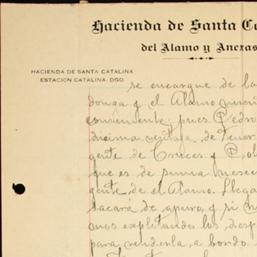 Hacienda de Santa Ca
del Alamo y Anexas
HACIENDA DE SANTA CATALINA
ESTACION CATALINA, DGO.
se encargue de la
ponga y el Alamo
conveniente; pues Pedro
décima de Tenor
gente de y
que es de suma necesi
gente de el Alamo. Llega
sacará de apuro, y si no
mos explotando los desp
para venderla a bordo